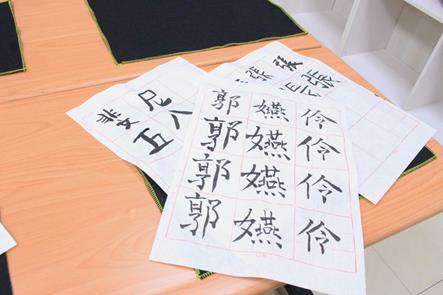 郭 嬿 伶
郭 嬿 伶
郭 嬿 伶
郭 嬿 伶
五 八
張 張